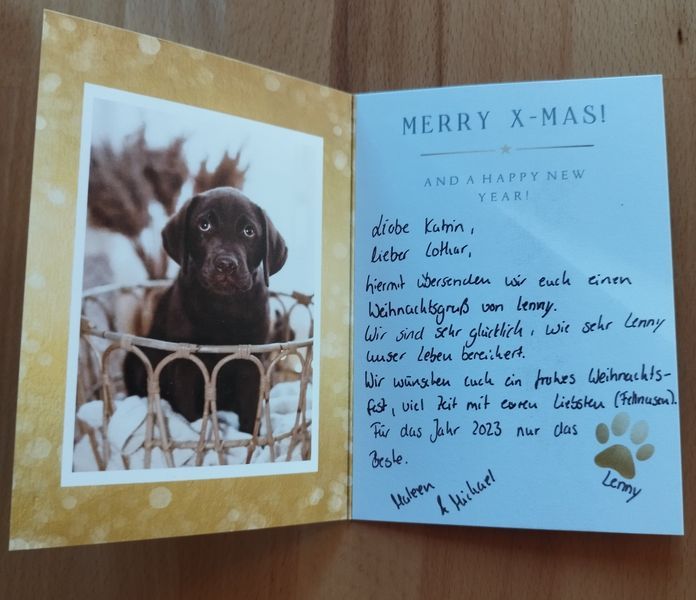 MERRY X-MAS!
AND A HAPPY NEW
YEAR!
Liebe Katrin,
lieber Lothar,
hiermit übersenden wir euch einen
Weihnachtsgruß von Lenny.
Wir sind sehr glücklich, wie sehr Lenny
unser Leben bereichert.
Wir wünschen euch ein frohes Weihnachts-
fest, viel Zeit mit euren Liebsten (Fellnasen).
Für das Jahr 2023 nur das
Beste.
Maleen
& Michael
Lenny